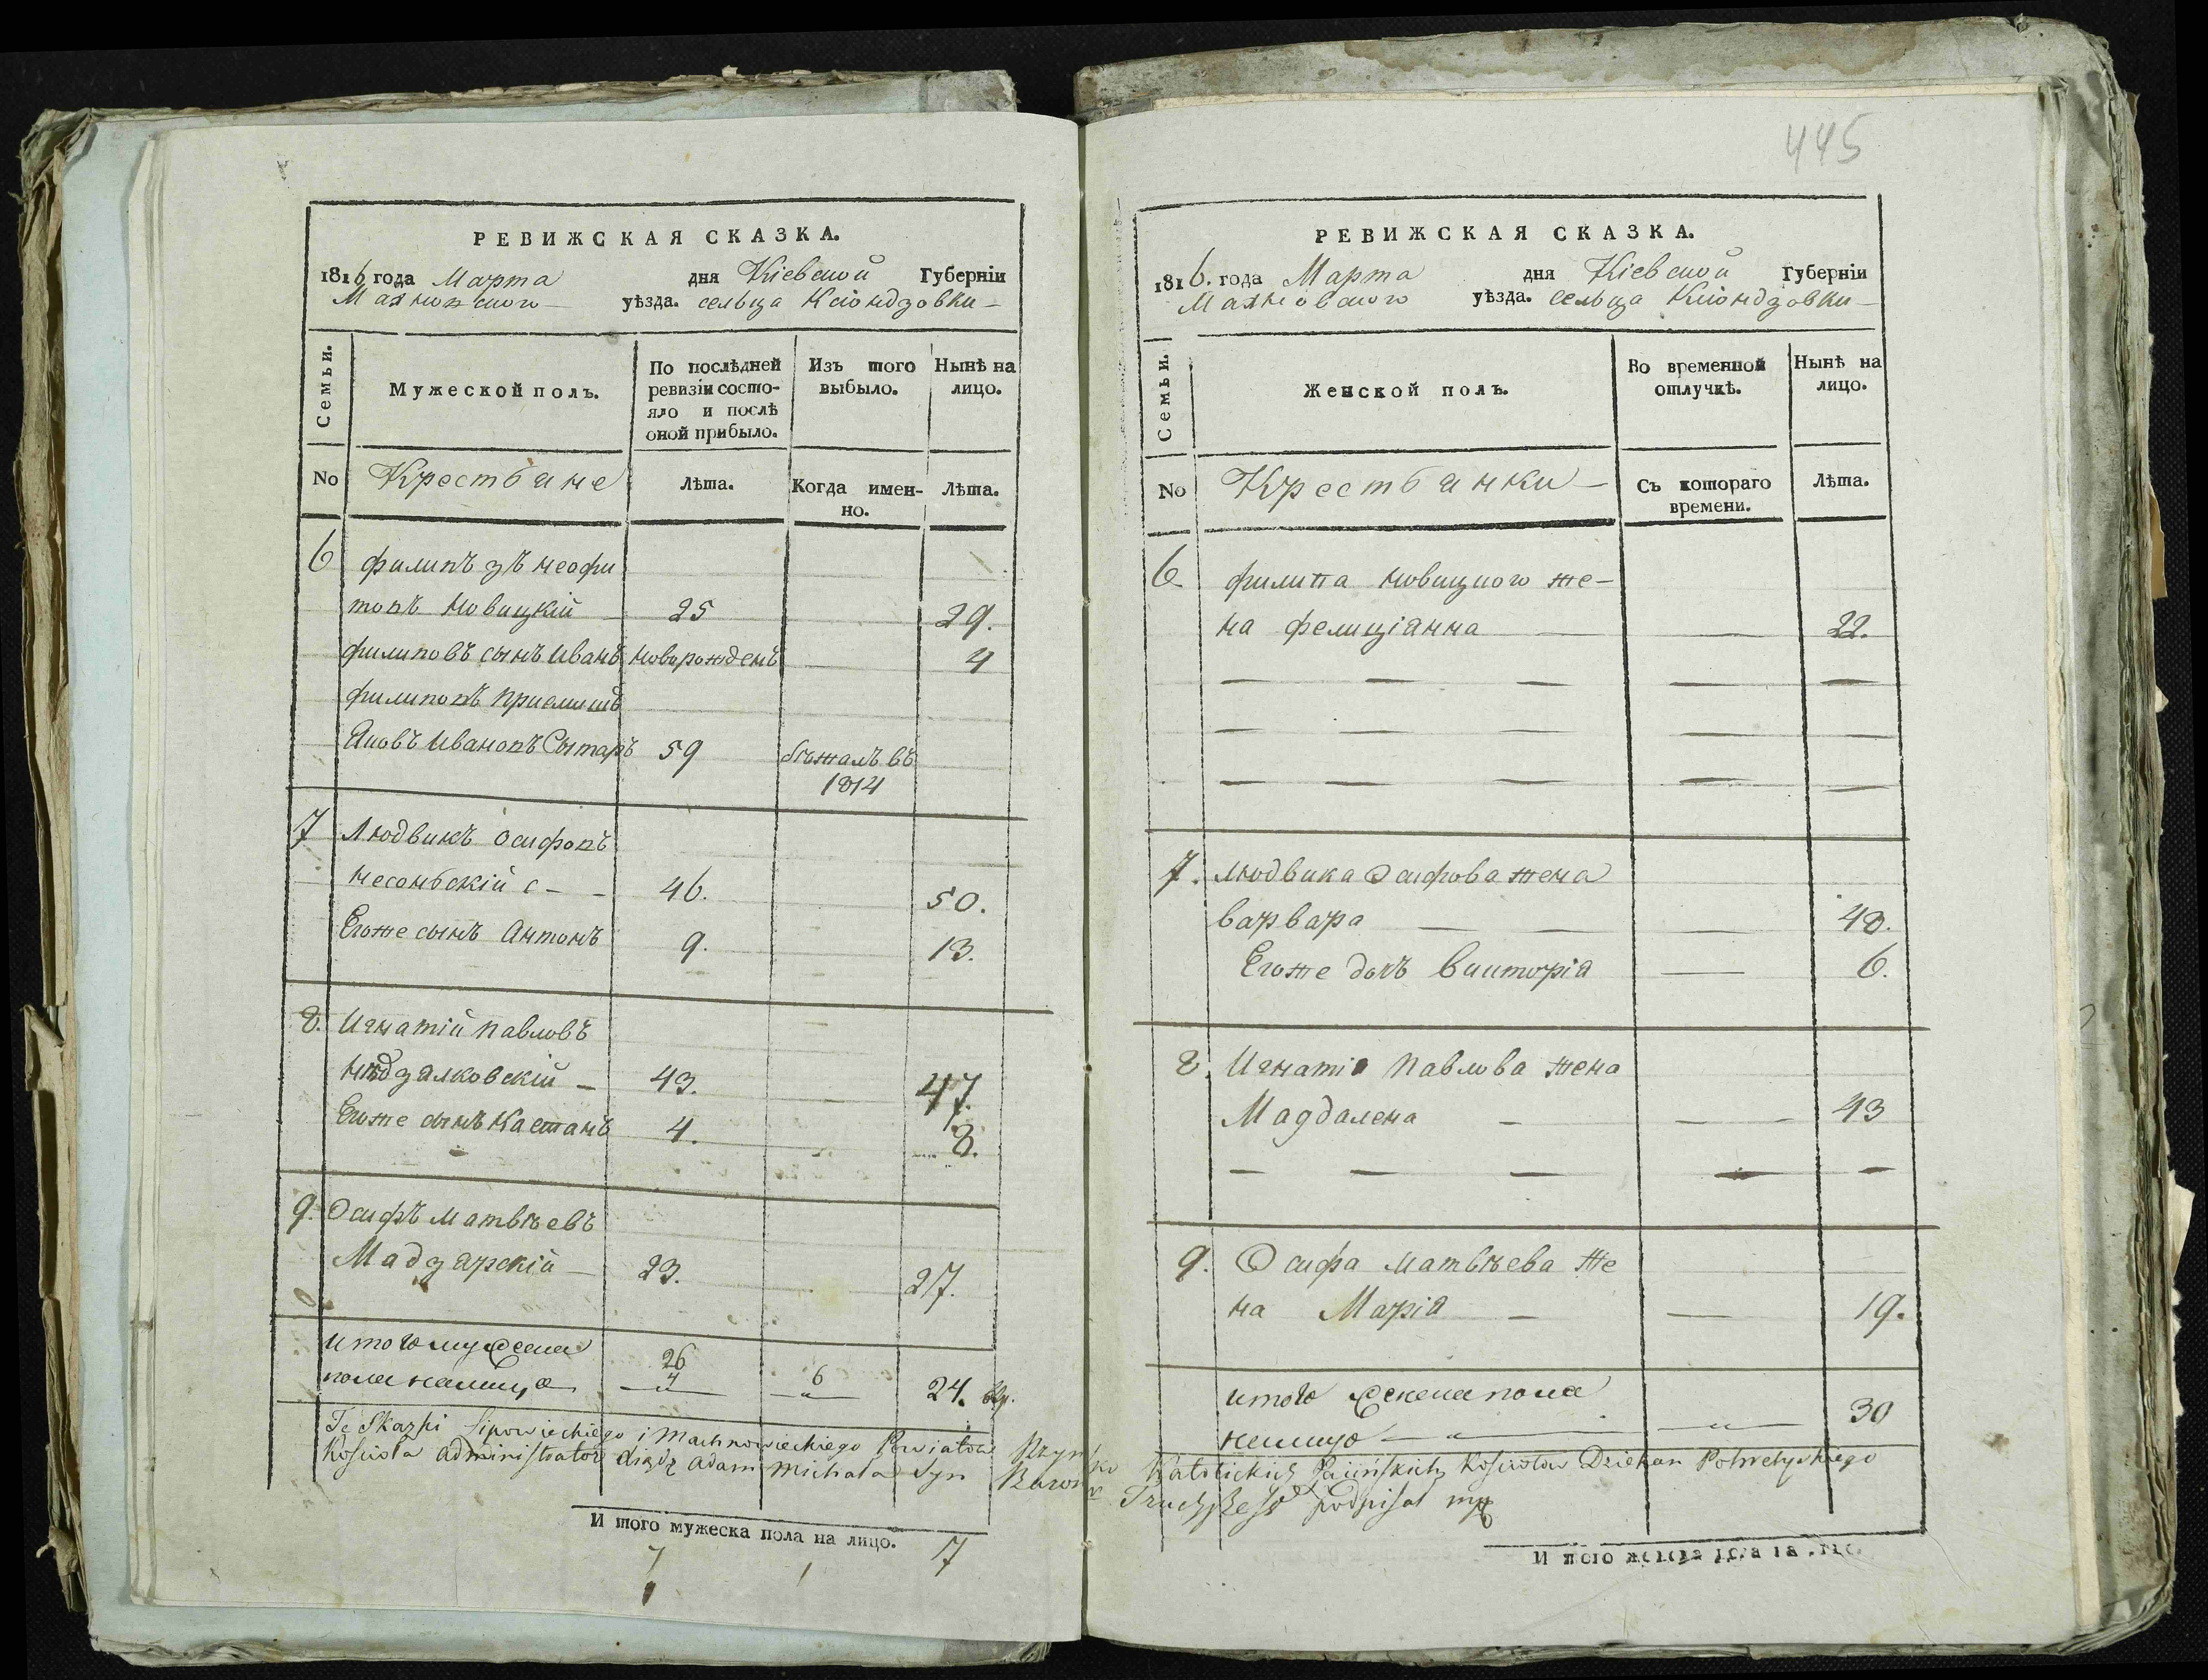 РЕВИЖСКАЯ СКАЗКА.
1816 года Марта дня Кіевской Губерніи
Махновского уѣзда. сельца Ксіондзовки
Семьи.
Мужеской полъ.
По послѣдней ревизіи состояло и послѣ оной прибыло.
Изъ того выбыло.
Нынѣ на лицо.
No Крестьяне Лѣта. Когда именно. Лѣта.
6 филипъ зъ неофи
товъ Новицкій 25 29.
филиповъ сынъ Иванъ новорожденъ 4
филиповъ приемышъ
Яковъ Ивановъ Сытаръ 59 бѣжалъ въ
1814
7 Людвикъ Осифовъ
46. 50.
Егоже сынъ Антонъ 9. 13.
8. Игнатій Павловъ
43. 47.
Егоже сынъ Каетанъ 4. 8.
9. Осифъ Матвѣевъ
Мадзярскій 23. 27.
Итого мужеска
26
пола налицо 4 6 24.
Te Skazki Lipowieckiego i Machnowieckiego Powiatow Rzymsko
Kościoła administrator Xiądz Adam Michała Syn Baron
И того мужеска пола на лицо.
7 1 17
445
РЕВИЖСКАЯ СКАЗКА.
1816. года Марта дня Кіевской Губерніи
Махновского уѣзда. сельца Ксіондзовки
Семьи.
Женской полъ.
Во временной отлучкѣ.
Нынѣ на лицо.
No Крестьянки Съ котораго времени. Лѣта.
6. филипа Новицкого же-
на фелиціанна 22.
7. Людвика Осифова жена
варвара 48.
Егоже дочь викторія 6.
8. Игнатія Павлова жена
Магдалена 43
9. Осифа Матвѣева же
на Марія 19.
Итого женска пола
налицо 30
Katolickich Kościołow Dziekan
podpisał